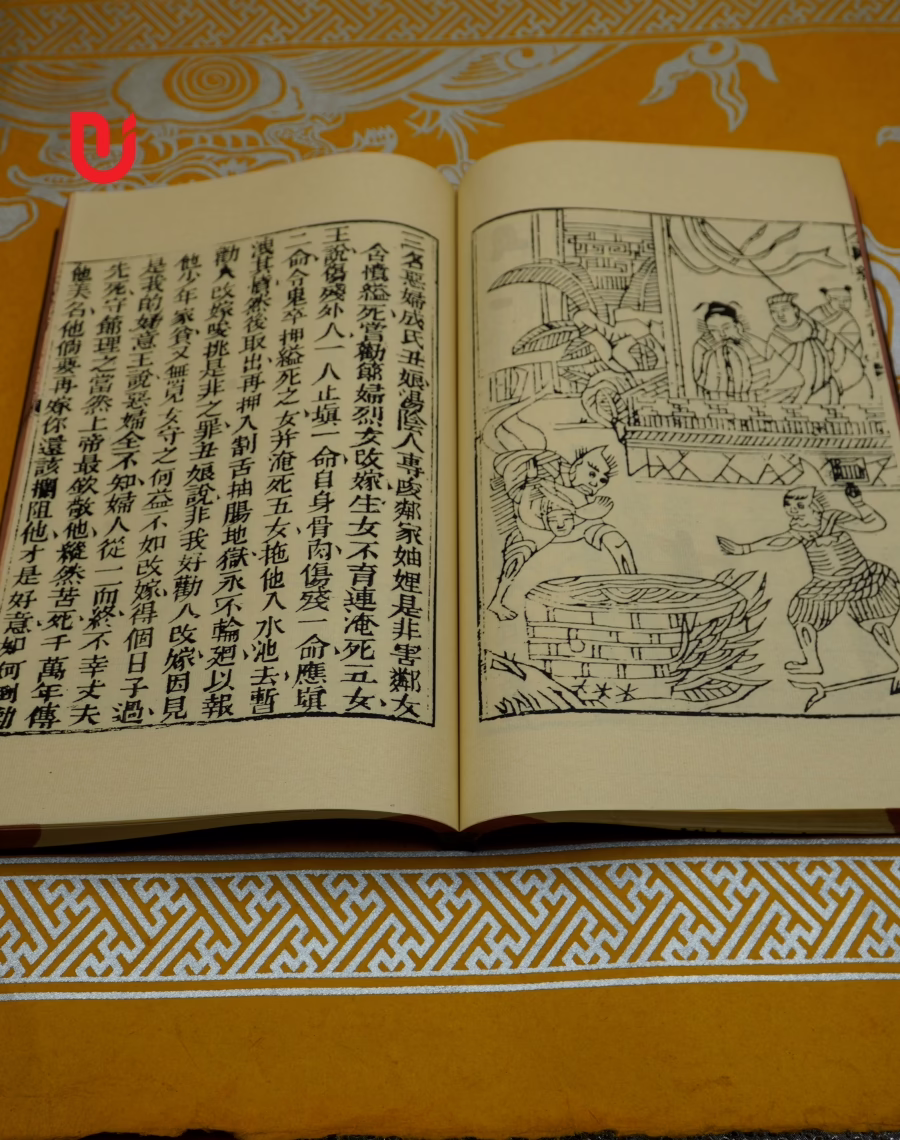 三名惡婦成氏丑娘湯陰人專唆鄰家妯娌是非害鄰女
含憤縊死嘗勸節婦烈女改嫁生女不育連淹死五女
王說傷殘外人一人止塡一命自身骨肉傷殘一命應塡
二命令鬼卒押縊死之女并淹死五女拖他入水池去暫
洩其憤然後取出再押入割舌抽腸地獄永不輪廻以報
勸人改嫁唆挑是非之罪丑娘說非我好勸人改嫁因見
他少年家貧又無兒女守之何益不如改嫁得個日子過
是我的婦意王說惡婦全不知婦人從一而終不幸丈夫
先死守節理之當然上帝最欽敬他縱然苦死千萬年傳
他美名他倘要再嫁你還該攔阻他才是好意如何倒勸